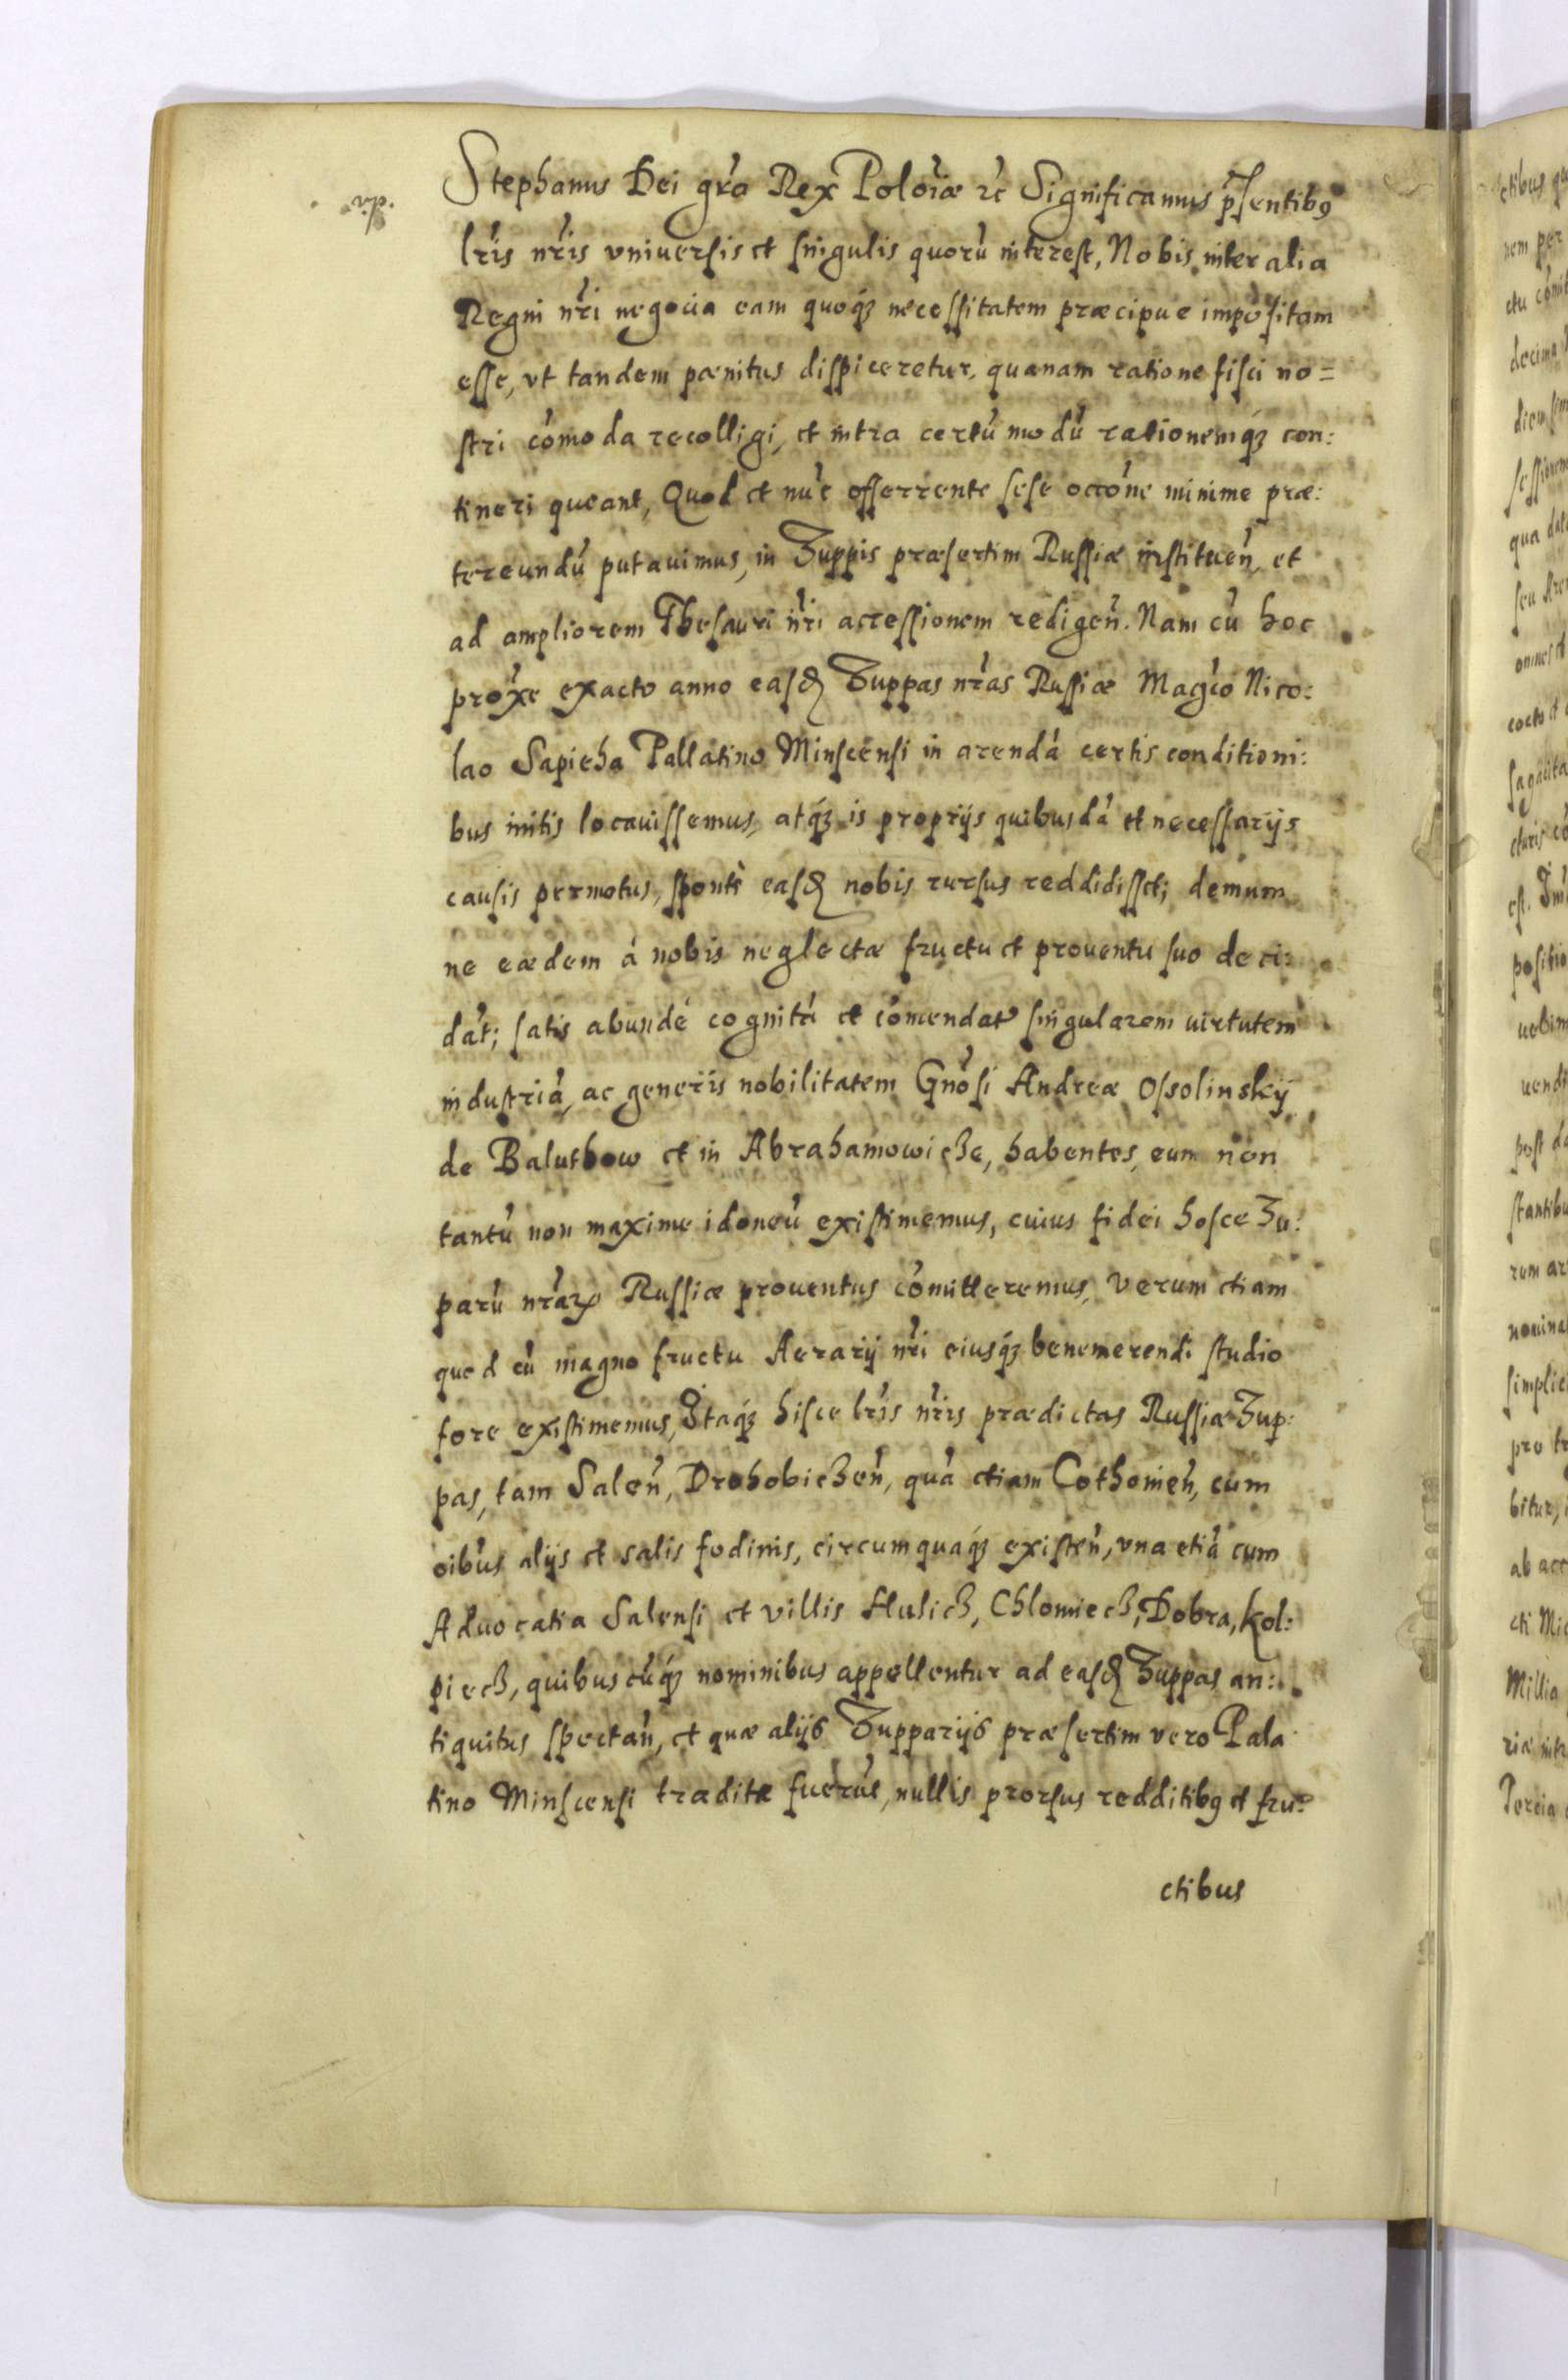 Stephanus Dei gr̃a Rex Polõiæ ꝛc̃ Significamus p̃sentibꝰ
lr̃is nr̃is vniuersis et singulis quorũ interest, Nobis inter alia
Regni nr̃i negocia eam quoq́ꝫ necessitatem præcipue impositam
esse, vt tandem pænitus dispiceretur, quanam ratione fisci no=
stri cõmoda recolligi, et intra certũ modũ rationemq́ꝫ con:
tineri queant, Quod et nũc offerrente sese occõne minime præ:
tereundũ putauimus, in Zuppis præsertim Russiæ instituen̄, et
ad ampliorem Thesauri nr̃i accessionem redigen̄. Nam cũ hoc
prox̃e exacto anno easđ Zuppas nr̃as Russiæ Mag̃co Nico:
lao Sapieha Pallatino Minscensi in arendã certis conditioni:
bus initis locauissemus, atq́ꝫ is proprijs quibusdã et necessarijs
causis permotus, spontè easđ nobis rursus reddidisset; demum
ne eædem á nobis neglectæ fructu et prouentu suo deci:
dãt; satis abundé cognitã et cõmendatã singularem uirtutem
industriã, ac generis nobilitatem Gnõsi Andreæ Ossolinskÿ
de Baluthow et in Abrahamowicze, habentes, eum non
tantũ non maxime idoneũ existimemus, cuius fidei hosce Zu:
parũ nr̃aꝝ Russiæ prouentus cõmitteremus, verum etiam
quod cũ magno fructu Aerarij nr̃i eiusq́ꝫ benemerendi studio
fore existimemus, Itaq́ꝫ hisce lr̃is nr̃is prædictas Russiæ Zup:
pas, tam Salen̄, Drohobiczen̄, quã etiam Cothonien̄, cum
oĩbus alijs et salis fodinis, circumquaq́ꝫ existen̄, vna etiã cum
Aduocatia Salensi et villis Hulicz, Chlomiecz, Dobra, Kol:
piecz, quibuscũq́ꝫ nominibus appellentur ad easđ Zuppas an:
tiquitus spectan̄, et quæ alijs Zupparijs præsertim vero Pala
tino Minscensi traditæ fuerũt, nullis prorsus redditibꝰ et fru:
ctibus